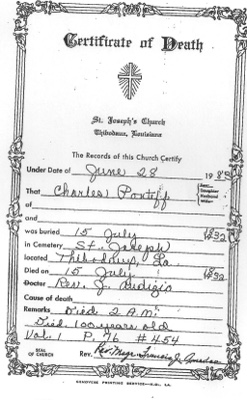 Certificate of Death
St. Joseph's Church
Thibodaux, Louisiana
The Records of this Church Certify
Under Date of June 28 1983
That Charles Pontiff
Son
Daughter
Husband
Wife
of
and
of
and
was buried 15 July 1892
in Cemetery St. Joseph
located Thibodaux, La.
Died on 15 July 1892
Doctor Rev. J.
Cause of death
Remarks Died 2 A.M.
Died 100 years old
Vol. 1 P. 76 #454
SEAL
OF CHURCH
Rev. Msgr. Francis J.